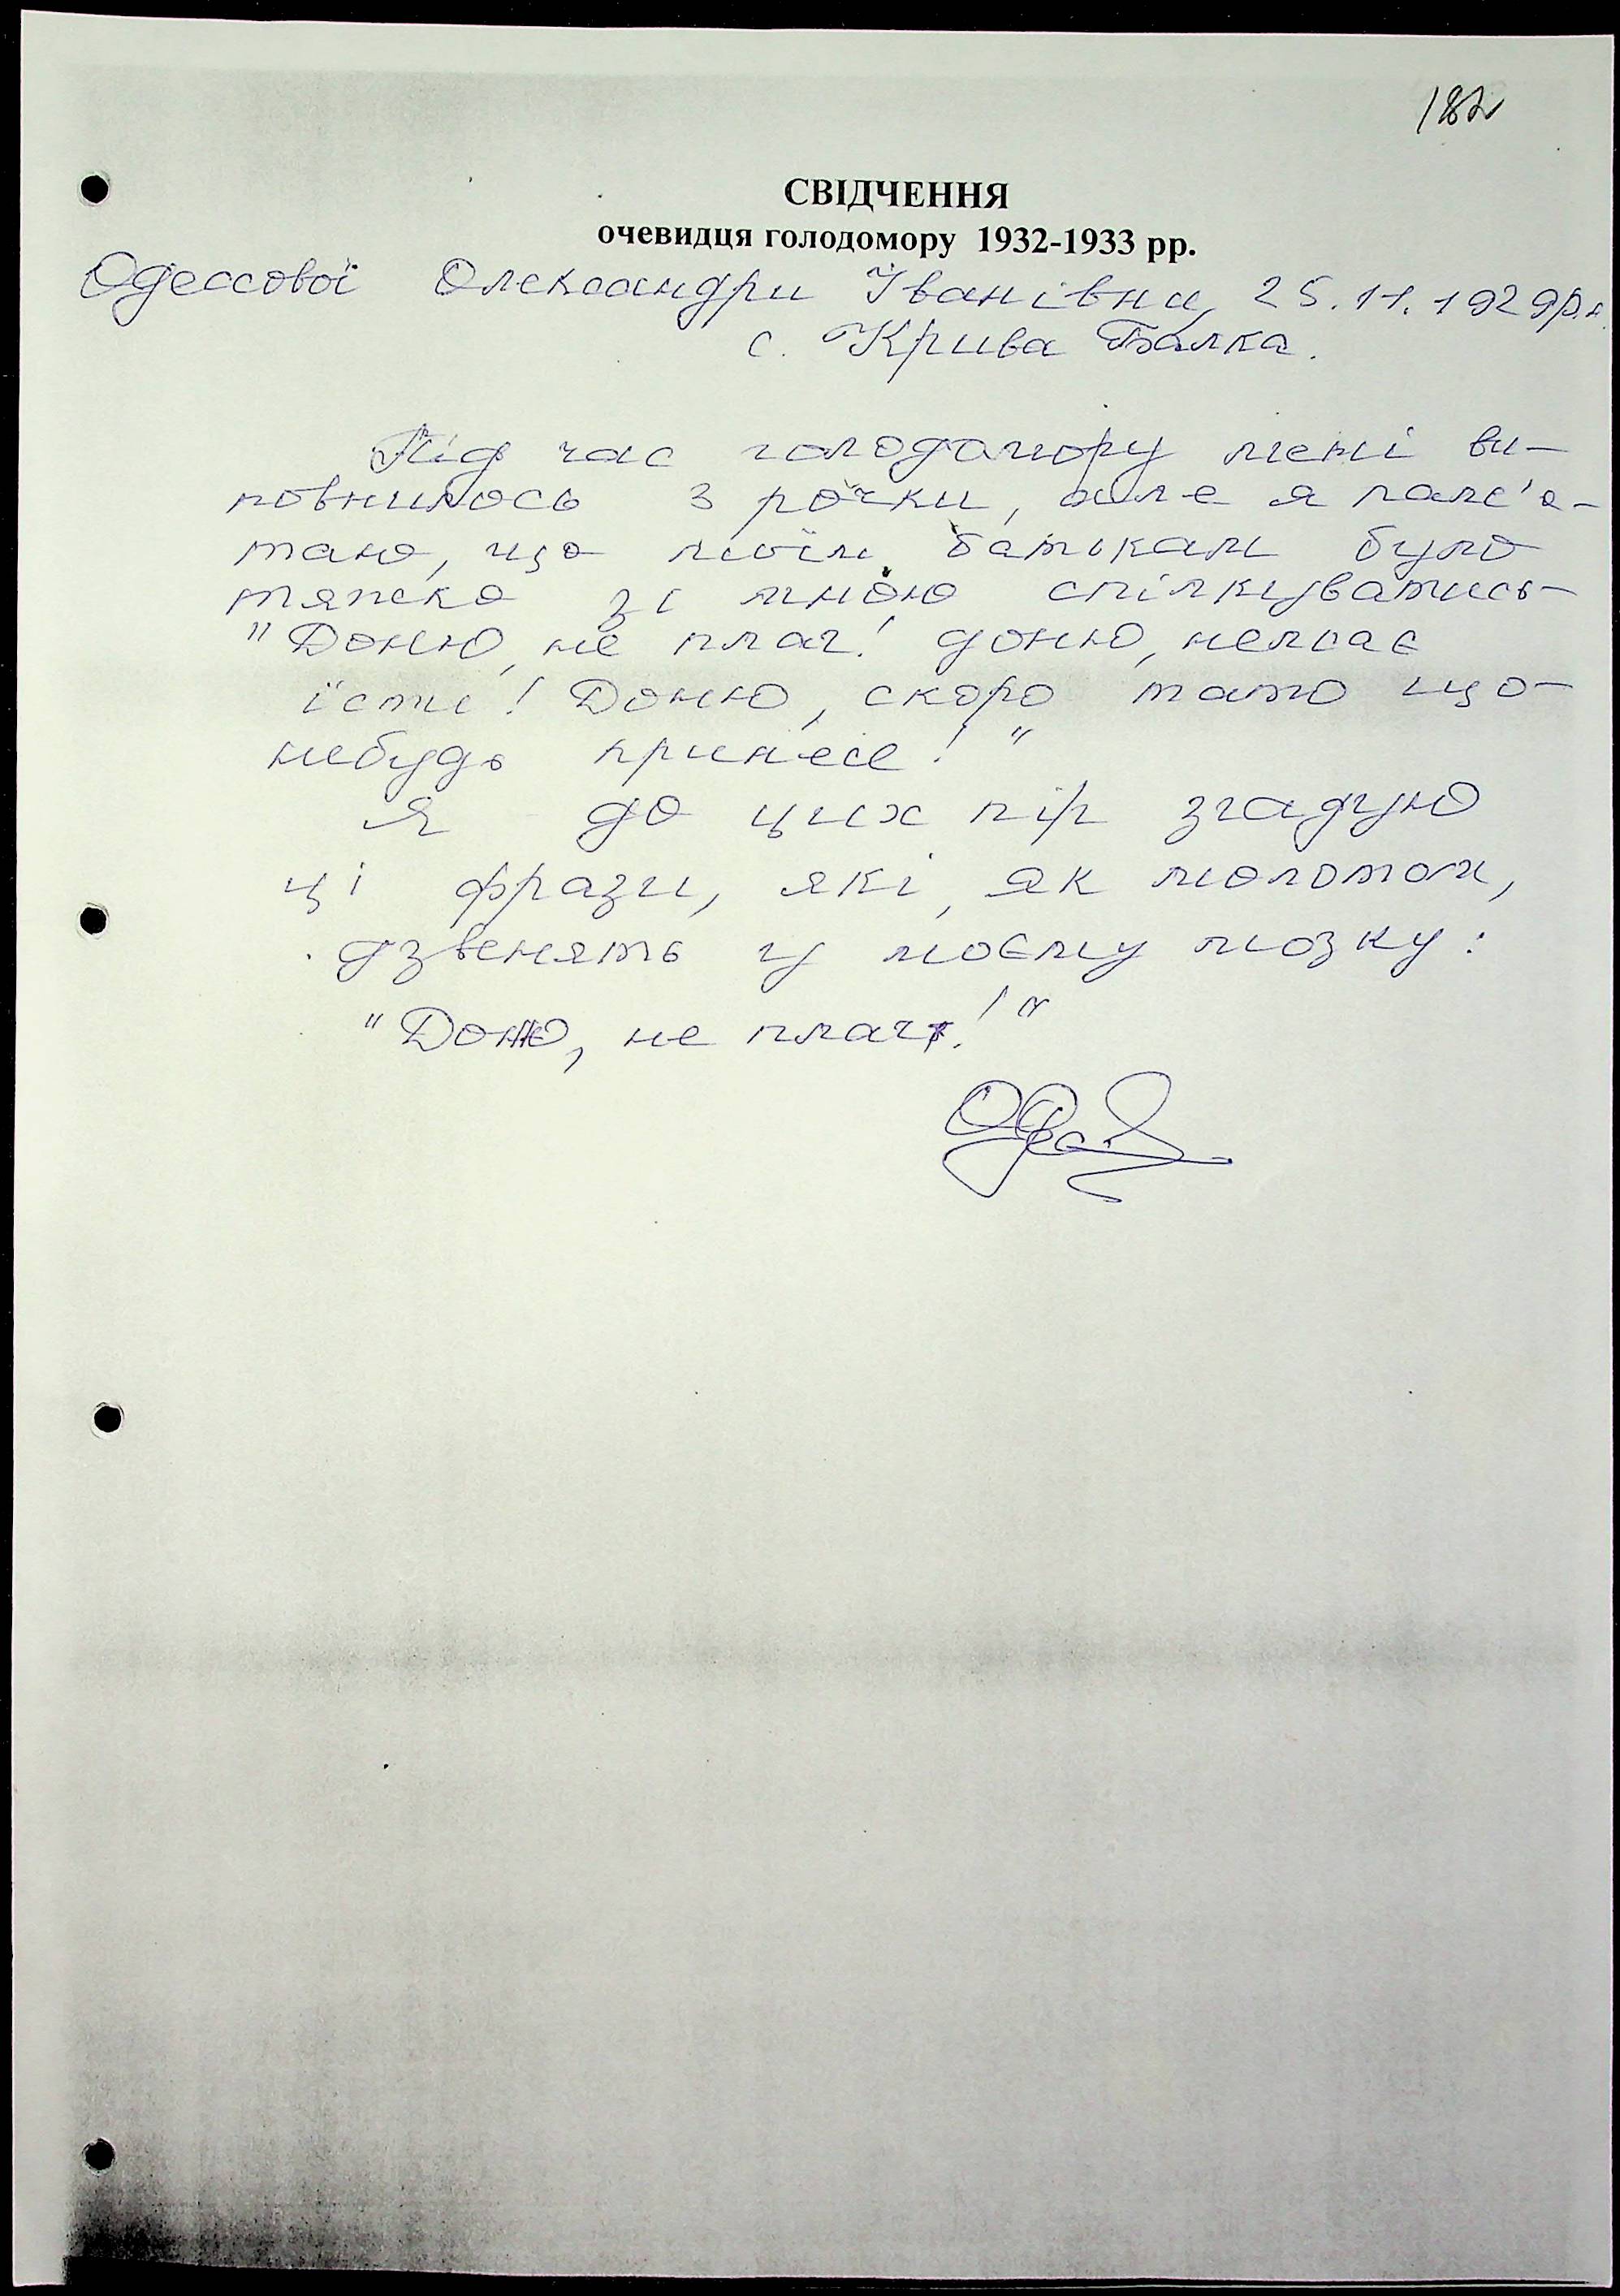 182
СВІДЧЕННЯ
очевидця голодомору 1932-1933 рр.
Одессової Олександри Іванівни, 25.11.1929р.н.
с. Крива Балка.
Під час голодомору мені ви-
повнилось 3 рочки, але я пам'я-
таю, що моїм батькам було
тяжко зі мною спілкуватись-
"Доню, не плач! Доню, немає
їсти! Доню, скоро тато що-
небудь принесе!"
Я до цих пір згадую
ці фрази, які, як молотом,
дзвенять у моєму мозку:
"Доню, не плач!"